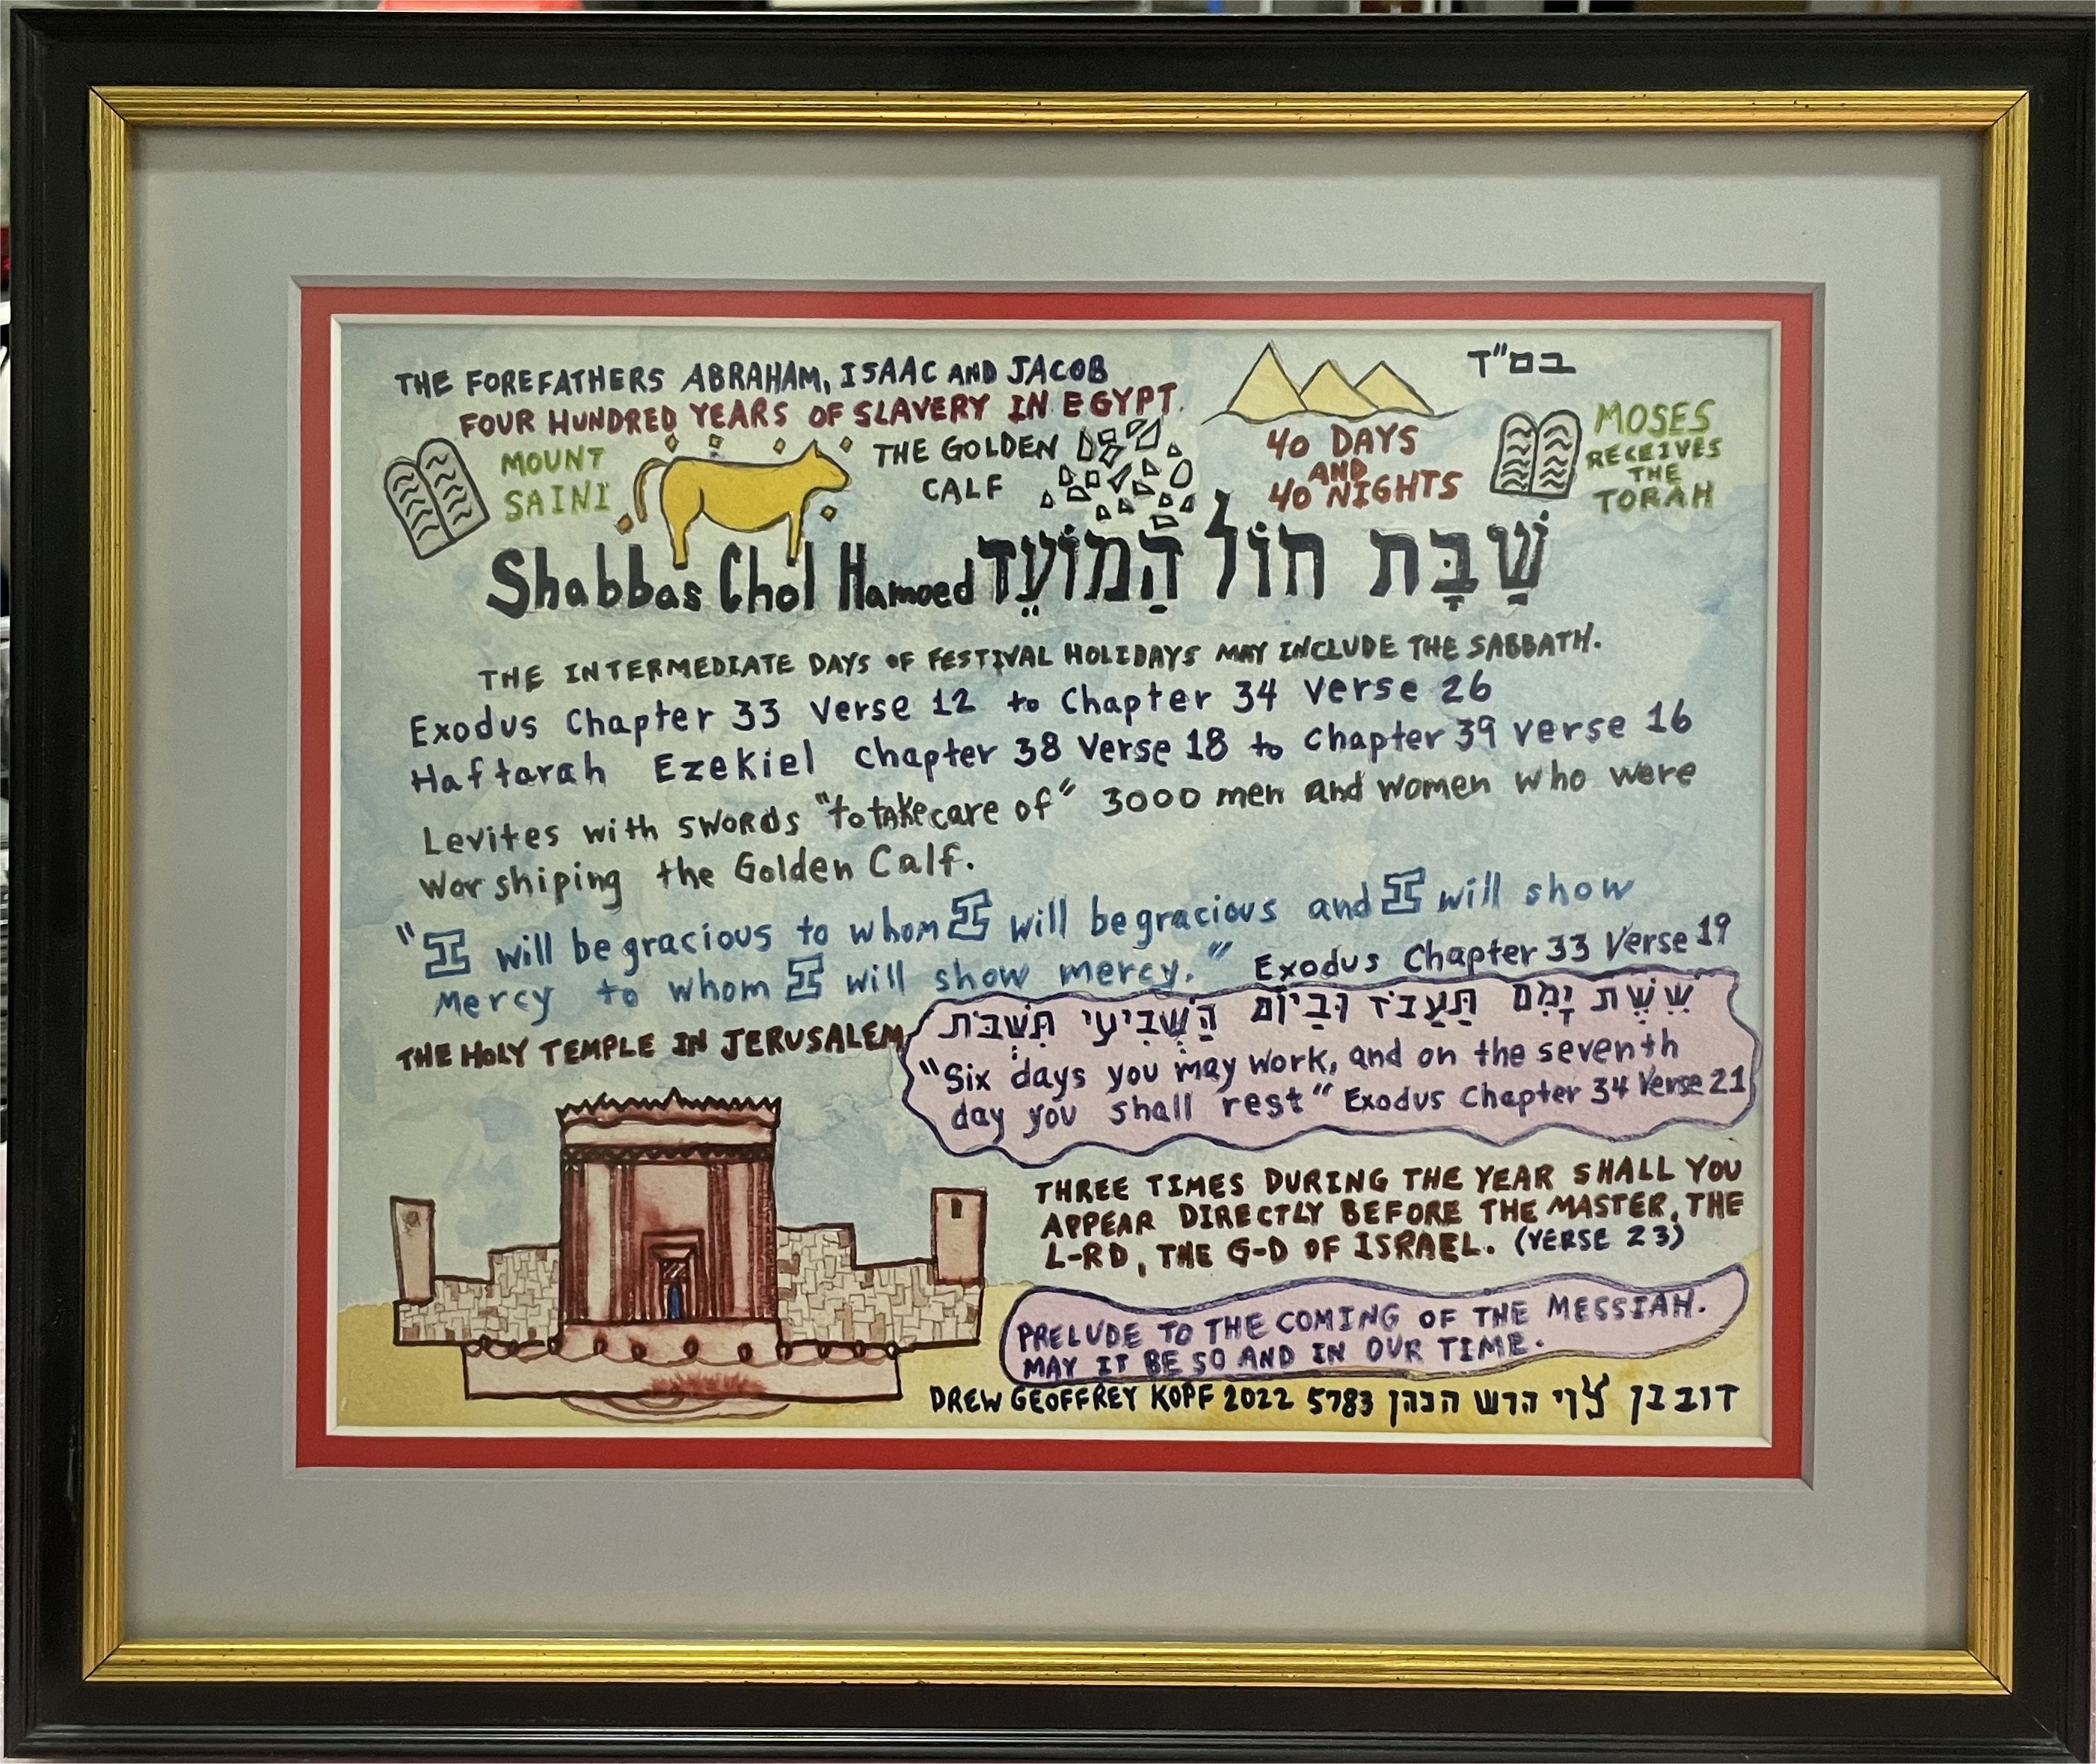 THE FOREFATHERS ABRAHAM, ISAAC AND JACOB
FOUR HUNDRED YEARS OF SLAVERY IN EGYPT.
בס"ד
MOUNT
SAINI
THE GOLDEN
CALF
40 DAYS
AND
40 NIGHTS
MOSES
RECEIVES
THE
TORAH
Shabbas Chol Hamoed שַׁבָּת חוֹל הַמוֹעֵד
THE INTERMEDIATE DAYS OF FESTIVAL HOLIDAYS MAY INCLUDE THE SABBATH.
Exodus Chapter 33 Verse 12 to Chapter 34 Verse 26
Haftarah Ezekiel Chapter 38 Verse 18 to Chapter 39 verse 16
Levites with swords "to take care of" 3000 men and women who were
worshiping the Golden Calf.
"I will be gracious to whom I will be gracious and I will show
mercy to whom I will show mercy." Exodus Chapter 33 Verse 19
THE HOLY TEMPLE IN JERUSALEM
שֵׁשֶׁת יָמִם תַּעֲבֹד וּבַיוֹם הַשְּׁבִיעִי תִּשְׁבֹּת
"Six days you may work, and on the seventh
day you shall rest" Exodus Chapter 34 Verse 21
THREE TIMES DURING THE YEAR SHALL YOU
APPEAR DIRECTLY BEFORE THE MASTER, THE
L-RD, THE G-D OF ISRAEL. (VERSE 23)
PRELUDE TO THE COMING OF THE MESSIAH.
MAY IT BE SO AND IN OUR TIME.
DREW GEOFFREY KOPF 2022 5783 דוב בן לוי הרש הכהן